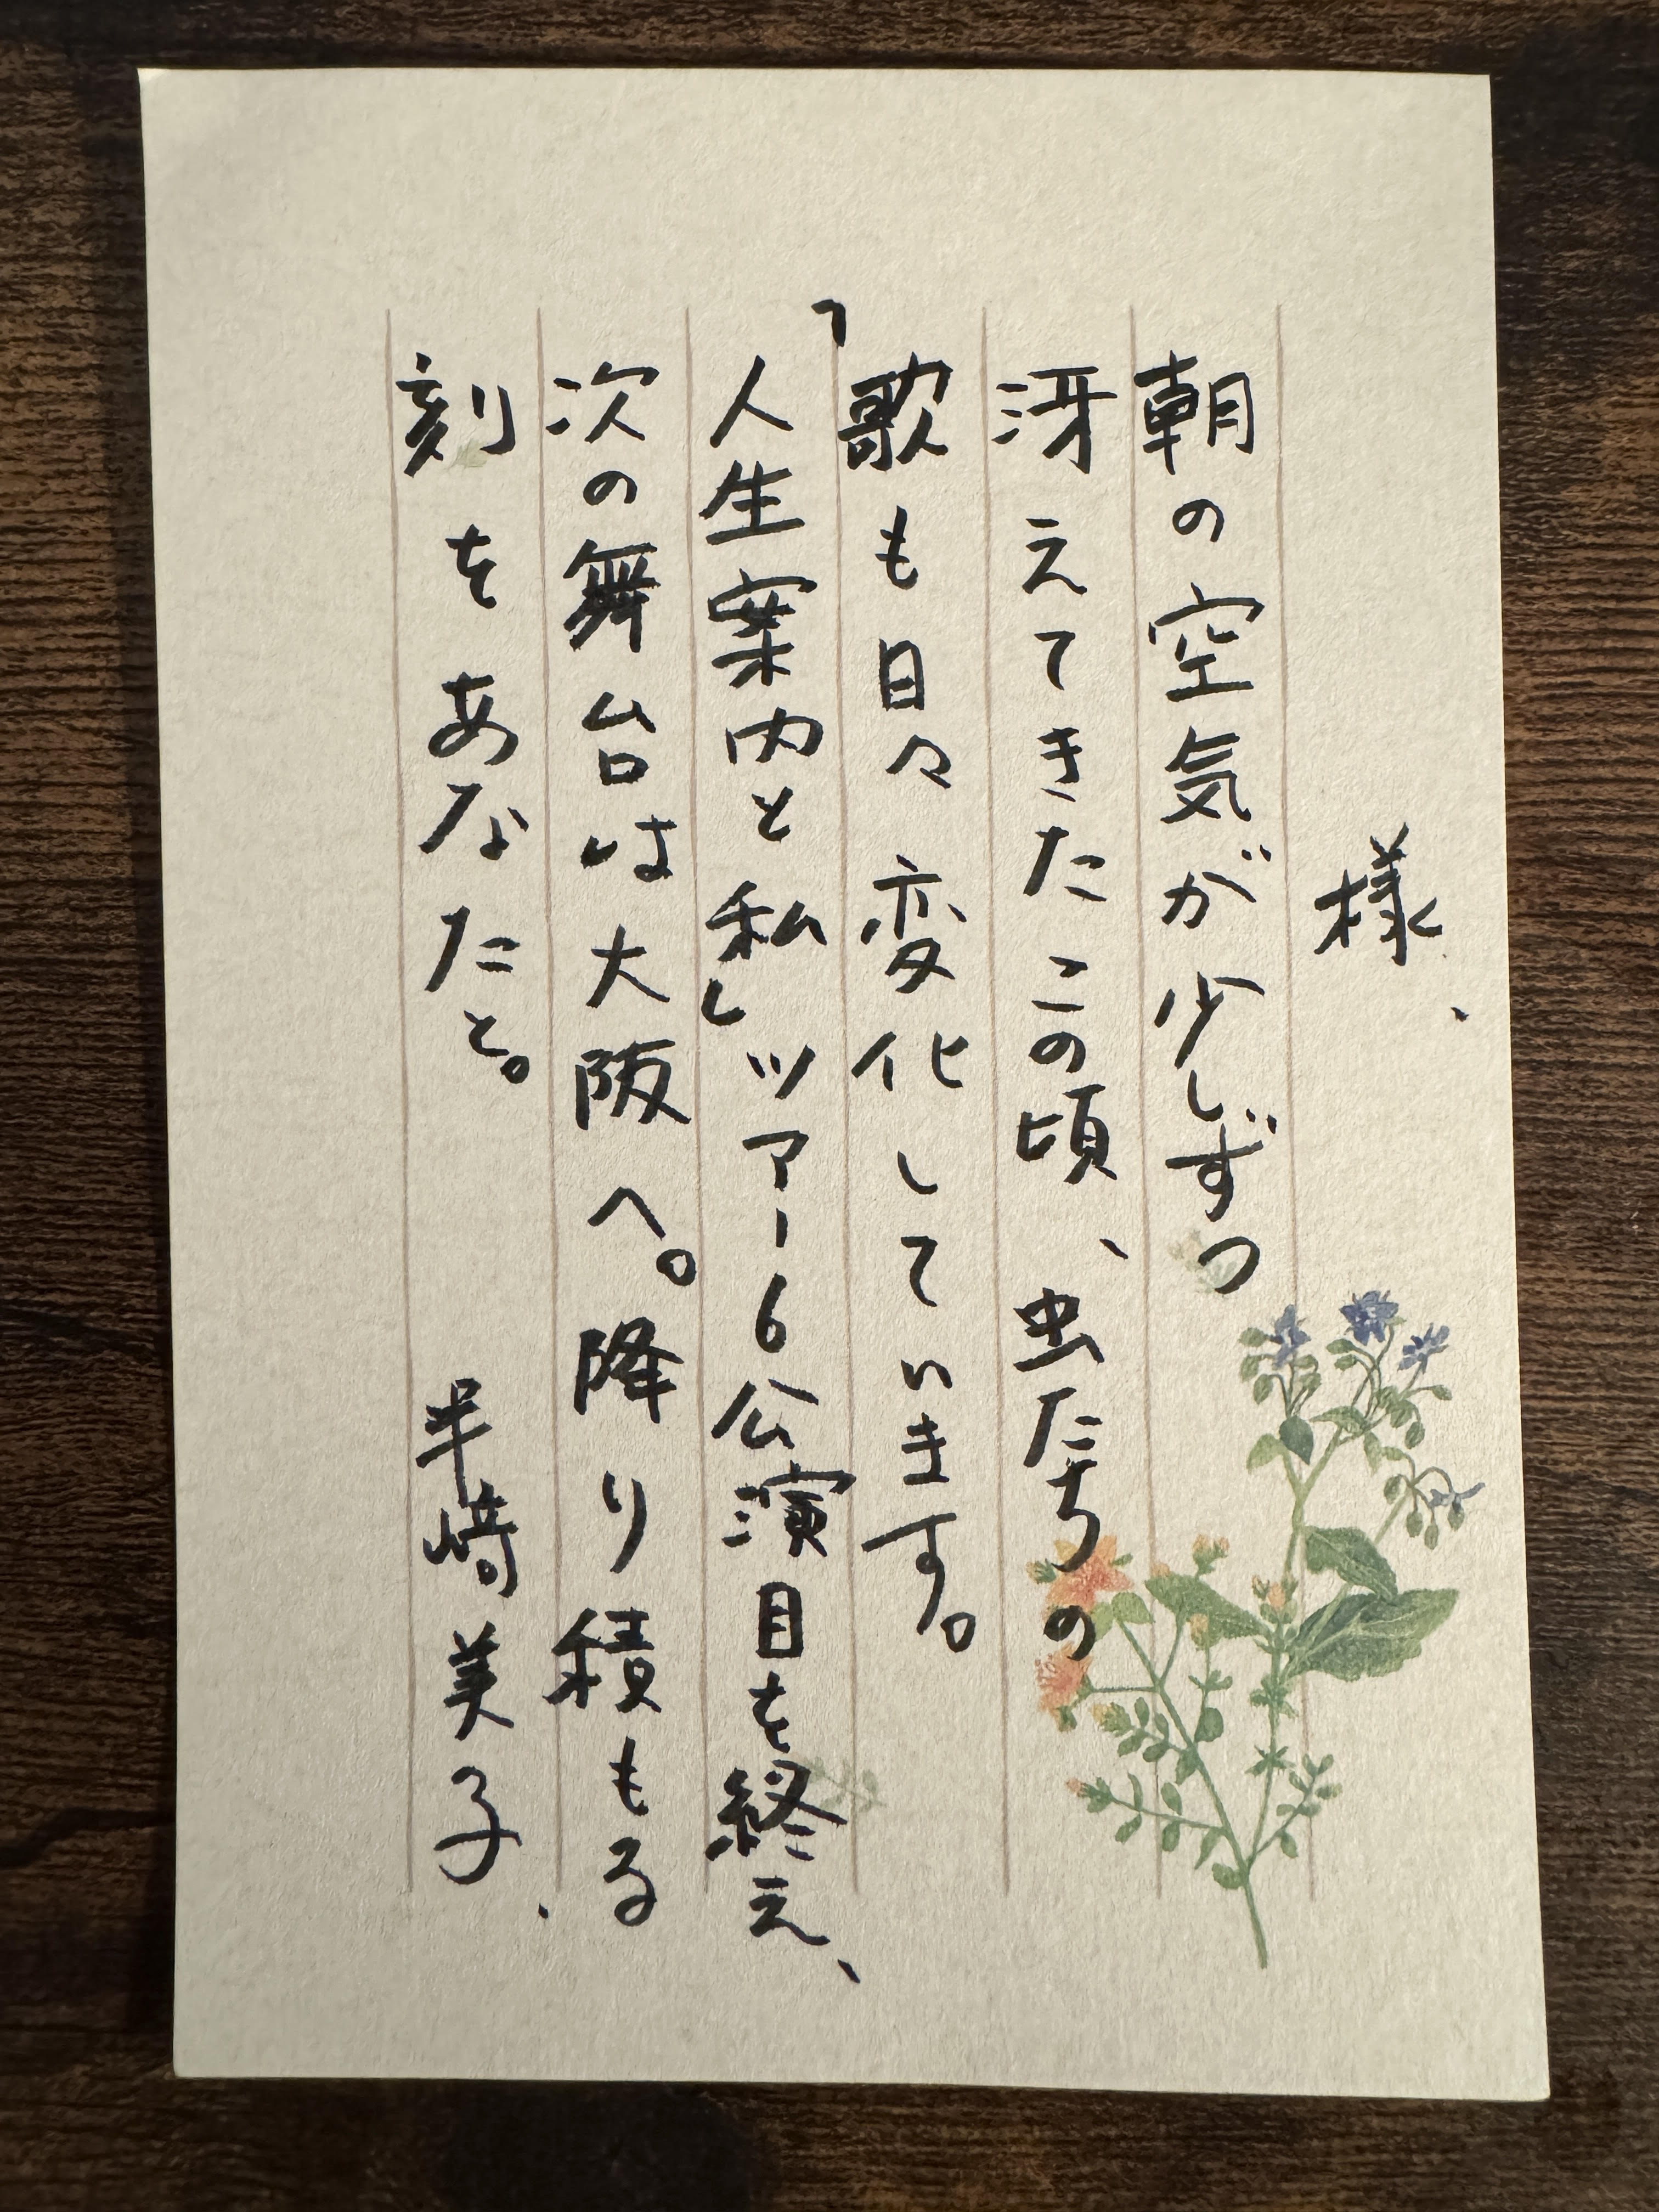 様、
朝の空気が少しずつ
冴えてきたこの頃、虫たちの
歌も日々変化しています。
「人生案内と私」ツアー6公演目を終え、
次の舞台は大阪へ。降り積もる
刻をあなたと。
半﨑美子